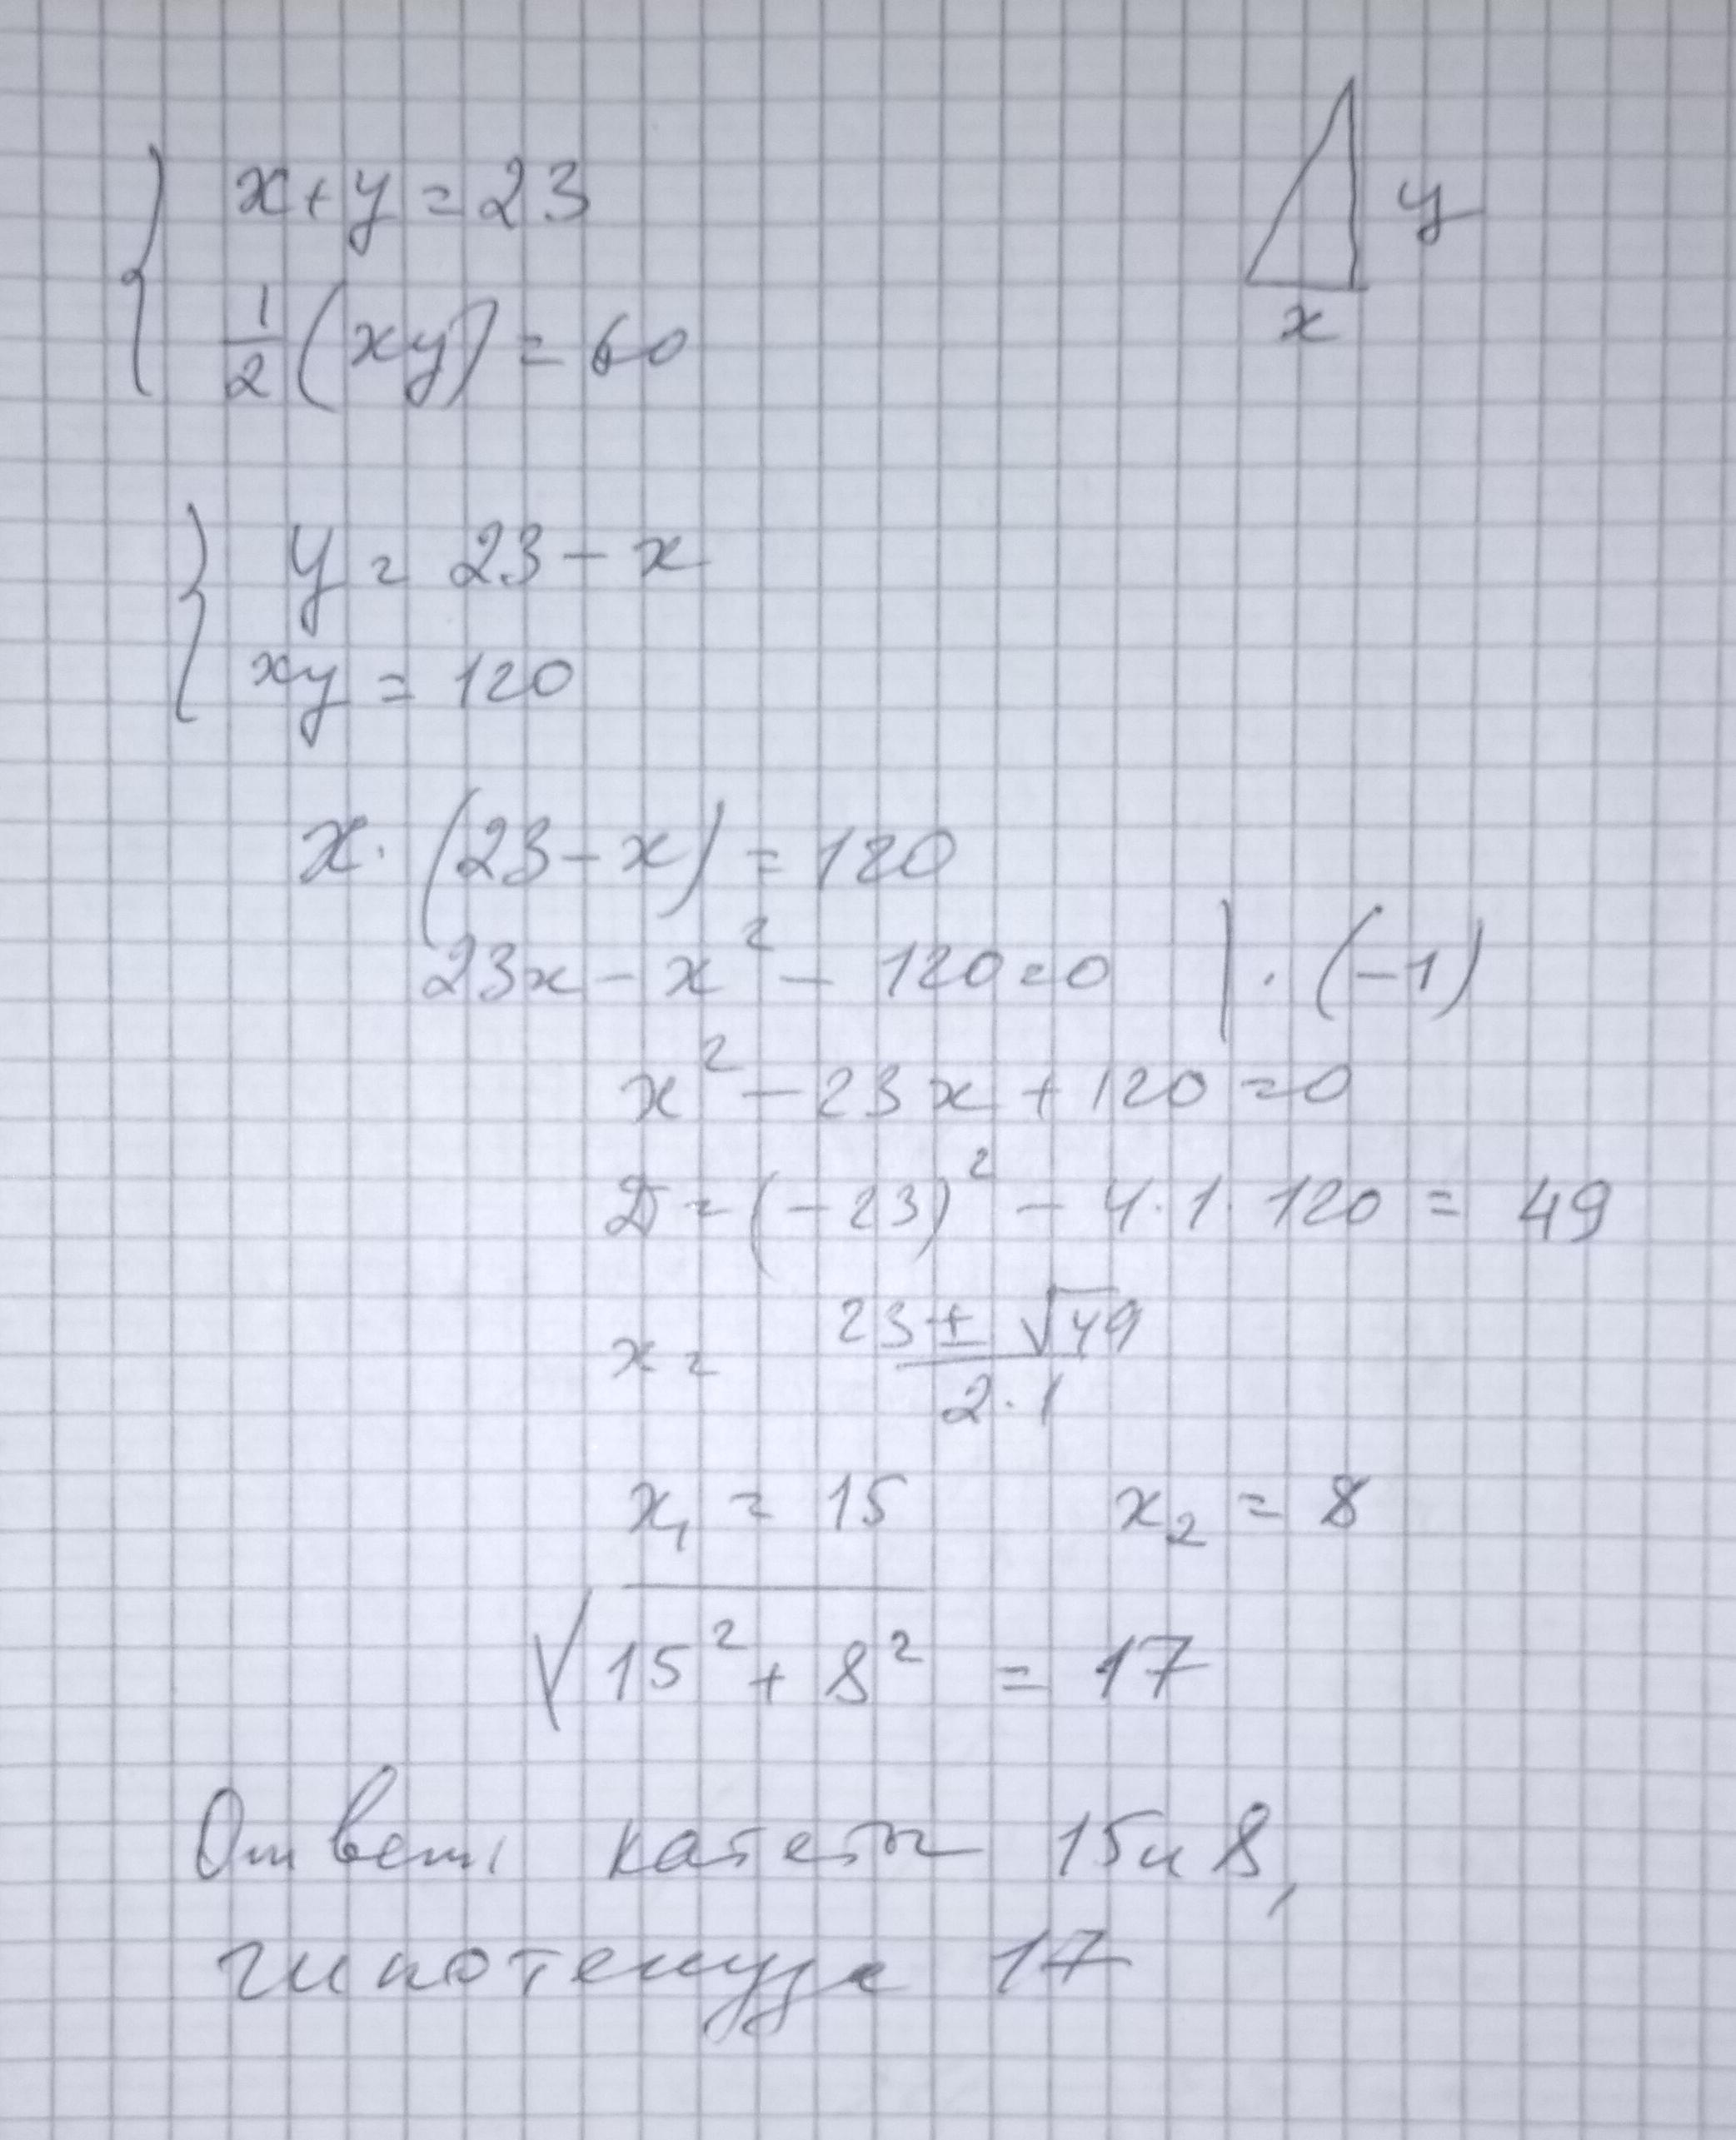 x + y = 23
y
1/2 (xy) = 60
x
y = 23 - x
xy = 120
x · (23 - x) = 120
23x - x² - 120 = 0 | · (-1)
x² - 23x + 120 = 0
D = (-23)² - 4 · 1 · 120 = 49
x = (23 ± √49) / (2 · 1)
x₁ = 15 x₂ = 8
√(15² + 8²) = 17
Ответ: катеты 15 и 8,
гипотенуза 17